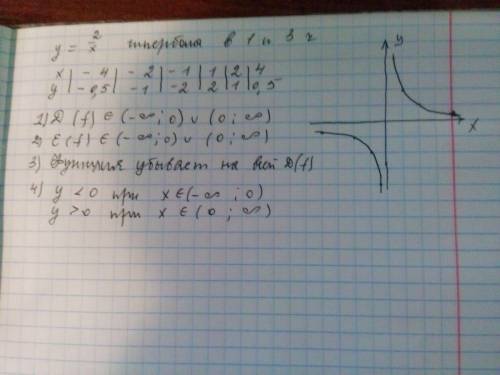 y = 2/x гипербола в 1 и 3 ч
x | -4 | -2 | -1 | 1 | 2 | 4
y | -0,5 | -1 | -2 | 2 | 1 | 0,5
1) D (f) ∈ (-∞; 0) ∪ (0; ∞)
2) E (f) ∈ (-∞; 0) ∪ (0; ∞)
3) Функция убывает на всей D(f)
4) y < 0 при x ∈ (-∞; 0)
y > 0 при x ∈ (0; ∞)
y
x